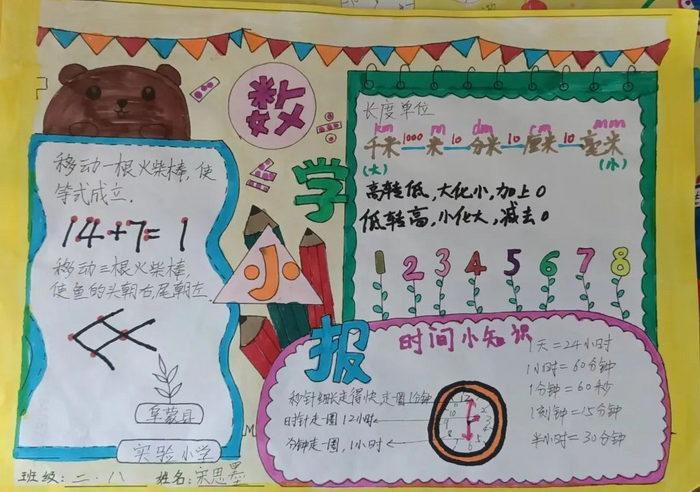 数
学
小
报
移动一根火柴棒,使
等式成立.
14+7=1
移动三根火柴棒,
使鱼的头朝右,尾朝左
阜蒙县
实验小学
班级:二.八 姓名:宋思墨
长度单位
km m dm cm mm
千米 1000 米 10 分米 10 厘米 10 毫米
(大) (小)
高转低,大化小,加上0
低转高,小化大,减去0
1 2 3 4 5 6 7 8
时间小知识
秒针细长走得快走一圈1分钟
时针走一圈12小时
分钟走一圈,1小时
1天=24小时
1小时=60分钟
1分钟=60秒
1刻钟=15分钟
半小时=30分钟